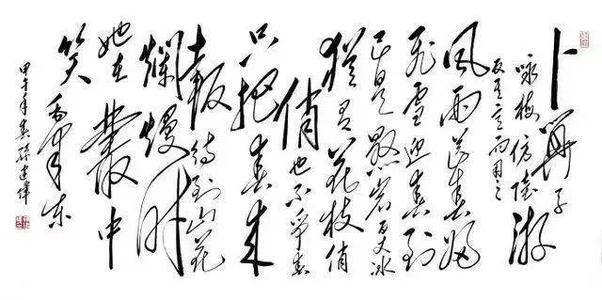 卜算子
咏梅仿陆游
反其意而用之
风雨送春归
飞雪迎春到
已是悬岩百丈冰
犹有花枝俏
俏也不争春
只把春来
报待到山花
烂熳时
她在丛中
笑毛泽东
甲午年 孙建伟